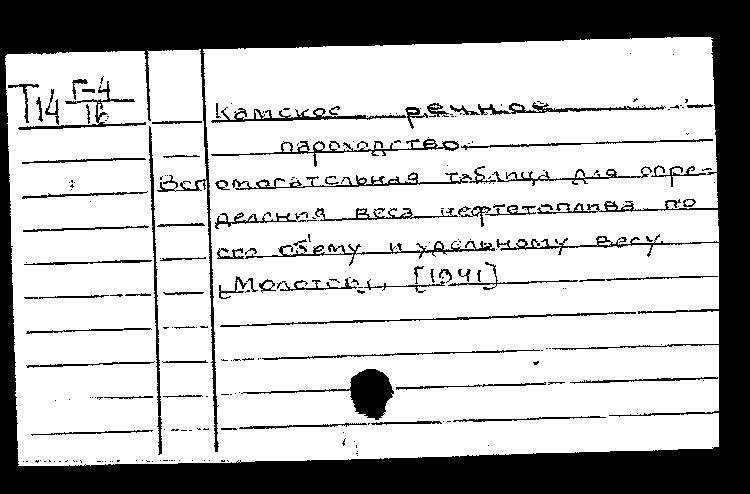 Т14 Г-4
16
Камское речное
пароходство.
Вспомогательная таблица для опре-
деления веса нефтетоплива по
его объему и удельному весу.
[Молотов], [1941]